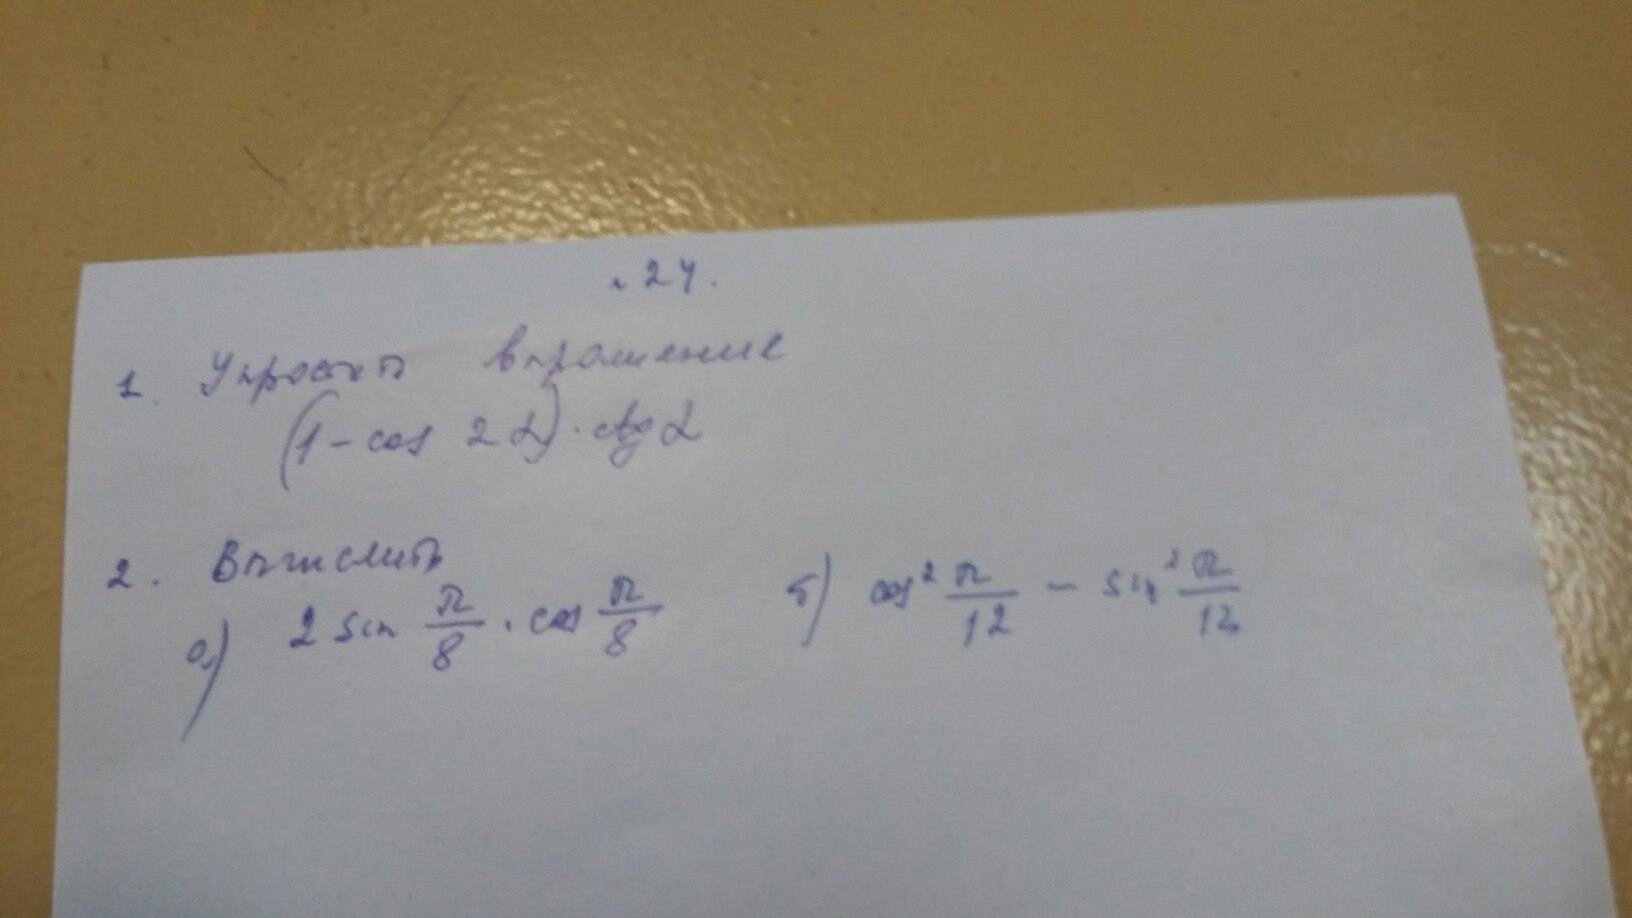 24.
1. Упростить выражение
(1 - cos 2α) · ctg α
2. Вычислить
а) 2 sin π/8 · cos π/8 б) cos² π/12 - sin² π/12